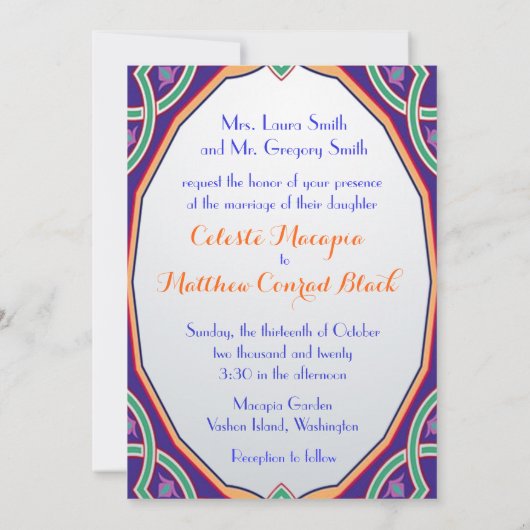 Mrs. Laura Smith
and Mr. Gregory Smith
request the honor of your presence
at the marriage of their daughter
Celeste Macapia
to
Matthew Conrad Black
Sunday, the thirteenth of October
two thousand and twenty
3:30 in the afternoon
Macapia Garden
Vashon Island, Washington
Reception to follow